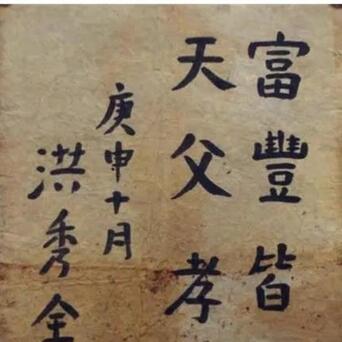 富豐皆
天父孝
庚申十月
洪秀全